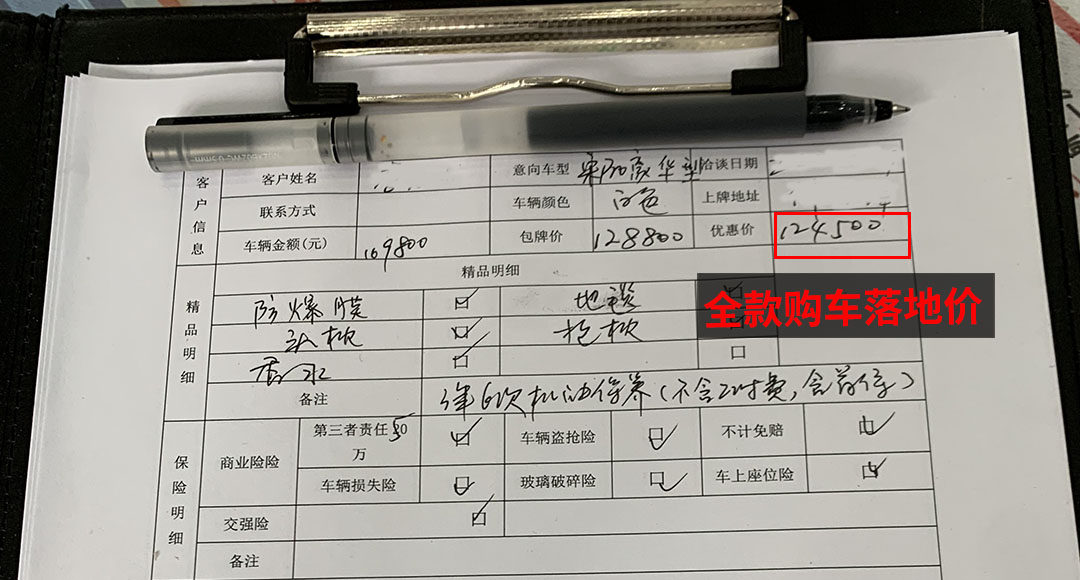 客户信息
客户姓名
意向车型 宋Pro豪华型 洽谈日期
联系方式
车辆颜色 白色 上牌地址
车辆金额(元) 109800 包牌价 128800 优惠价 124500
精品明细
精品明细
防爆膜 地毯
全款购车落地价
头枕 抱枕
香水
备注 送6次机油保养(不含工时费,含首保)
保险明细
商业险险
第三者责任50万 车辆盗抢险 不计免赔
车辆损失险 玻璃破碎险 车上座位险
交强险
备注